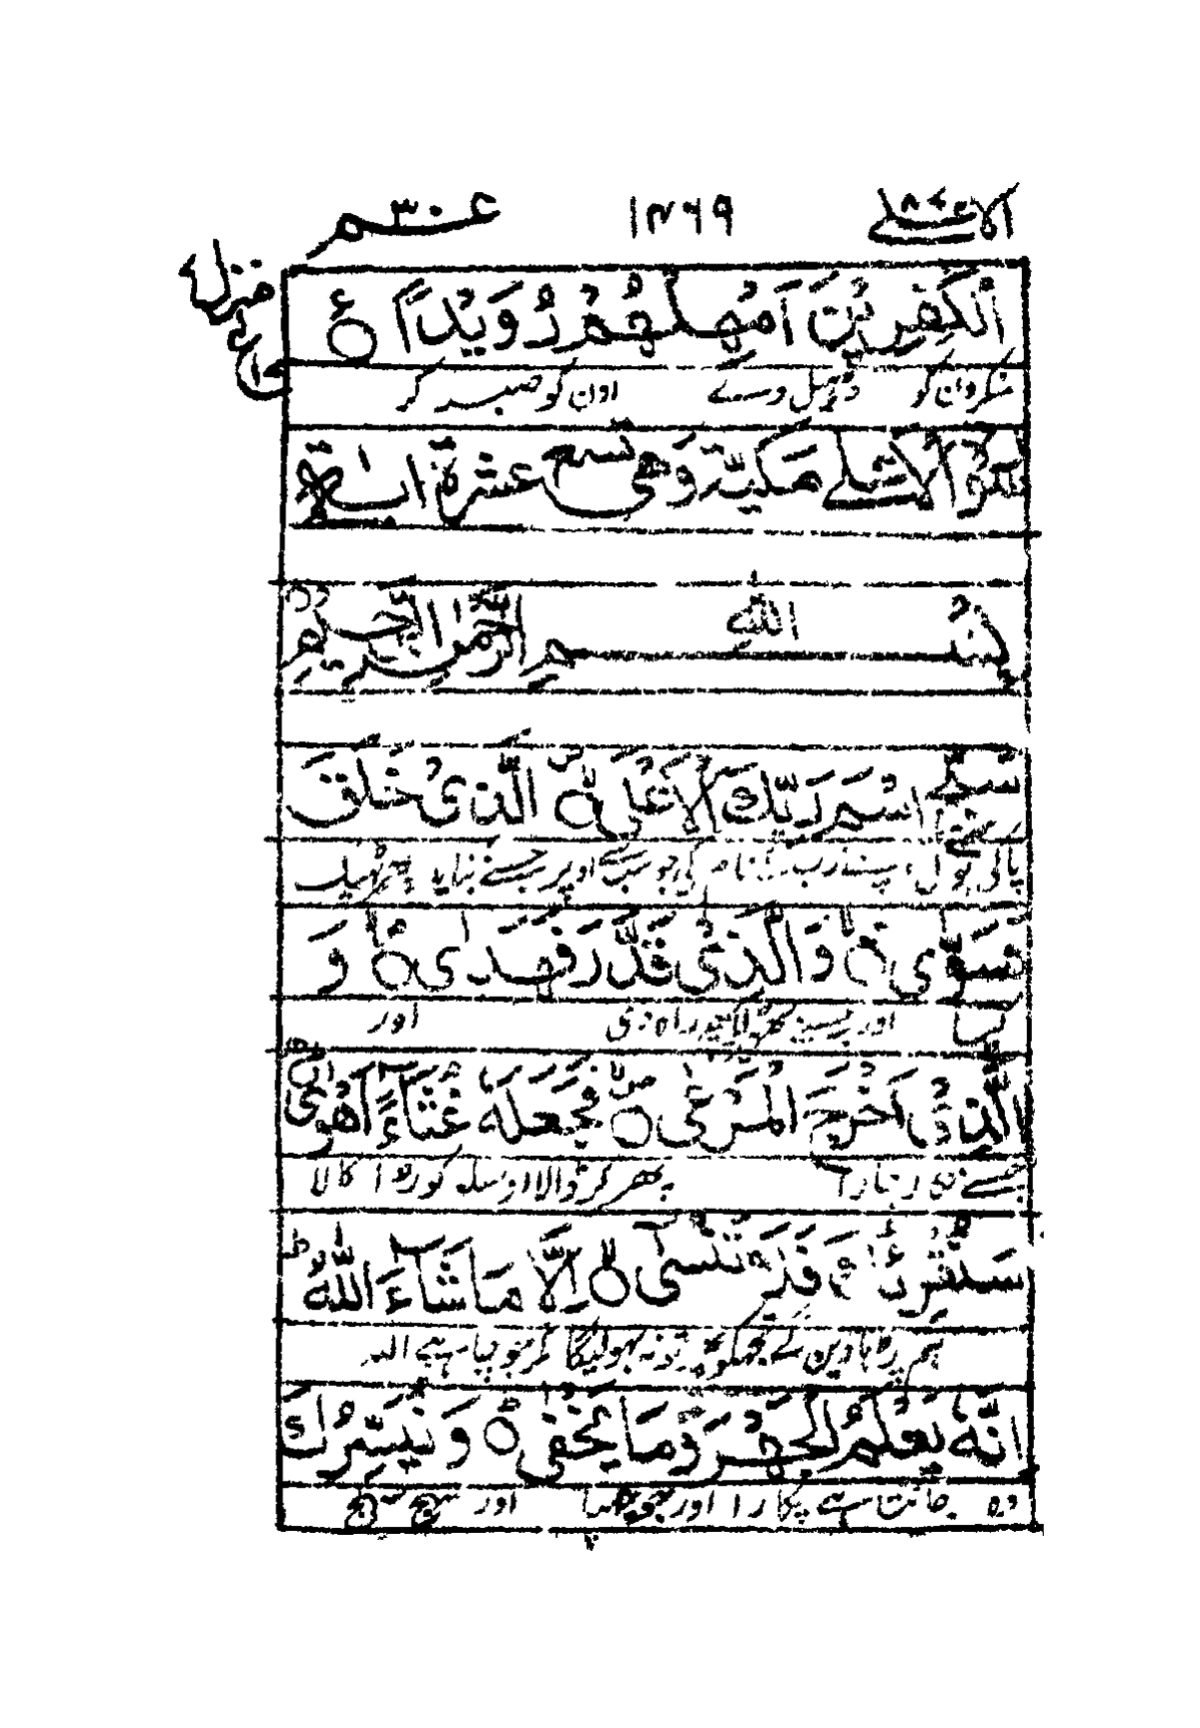 الاعلى ٨٧ ١٢٦٩ عم ٣٠
منزل ٧
الْكٰفِرِيْنَ اَمْهِلْهُمْ رُوَيْدًا ۝ ع
اون کو صبر کر
سورة الاعلى مكية وهى تسع عشرة اية
بِسْمِ اللّٰهِ الرَّحْمٰنِ الرَّحِيْمِ
سَبِّحِ اسْمَ رَبِّكَ الْاَعْلَى ۝ الَّذِىْ خَلَقَ
پاکی بول اپنے رب کے نام کی جو سب سے اوپر جسنے بنایا پھر ٹھیک
فَسَوّٰى ۝ وَالَّذِىْ قَدَّرَ فَهَدٰى ۝ وَ
کیا اور جسنے ٹھرایا پھر راہ دی اور
الَّذِىْ اَخْرَجَ الْمَرْعٰى ۝ فَجَعَلَهٗ غُثَآءً اَحْوٰى
جسنے پھر کر ڈالا اوسکو کوڑا کالا
سَنُقْرِئُكَ فَلَا تَنْسٰٓى ۝ اِلَّا مَا شَآءَ اللّٰهُ
ہم پڑھا دین گے تجھکو پھر تو نہ بھولیگا مگر جو چاہے اللہ
اِنَّهٗ يَعْلَمُ الْجَهْرَ وَمَا يَخْفٰى ۝ وَنُيَسِّرُكَ
وہ جانتا ہے پکارا اور جو چھپا اور سہج سہج